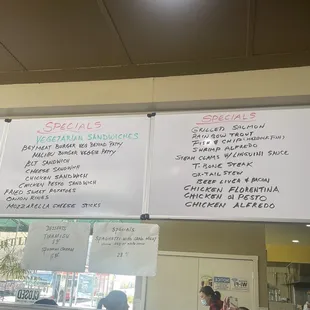 SPECIALS
VEGETARIAN SANDWICHES
BEYMEAT BURGER VEG BEYOND PATTY
MALIBU BURGER VEGGIE PATTY
BLT SANDWICH
CHEESE SANDWICH
CHICKEN SANDWICH
CHICKEN PESTO SANDWICH
FRIED SWEET POTATOES
ONION RINGS
MOZZARELLA CHEESE STICKS
SPECIALS
GRILLED SALMON
RAINBOW TROUT
FISH & CHIP
SHRIMP ALFREDO
STEAM CLAMS W/LINGUINI SAUCE
T-BONE STEAK
OX-TAIL STEW
BEEF LIVER & BACON
CHICKEN FLORENTINA
CHICKEN OL PESTO
CHICKEN ALFREDO
DESSERTS
TIRAMISU
SPECIALS
OPEN